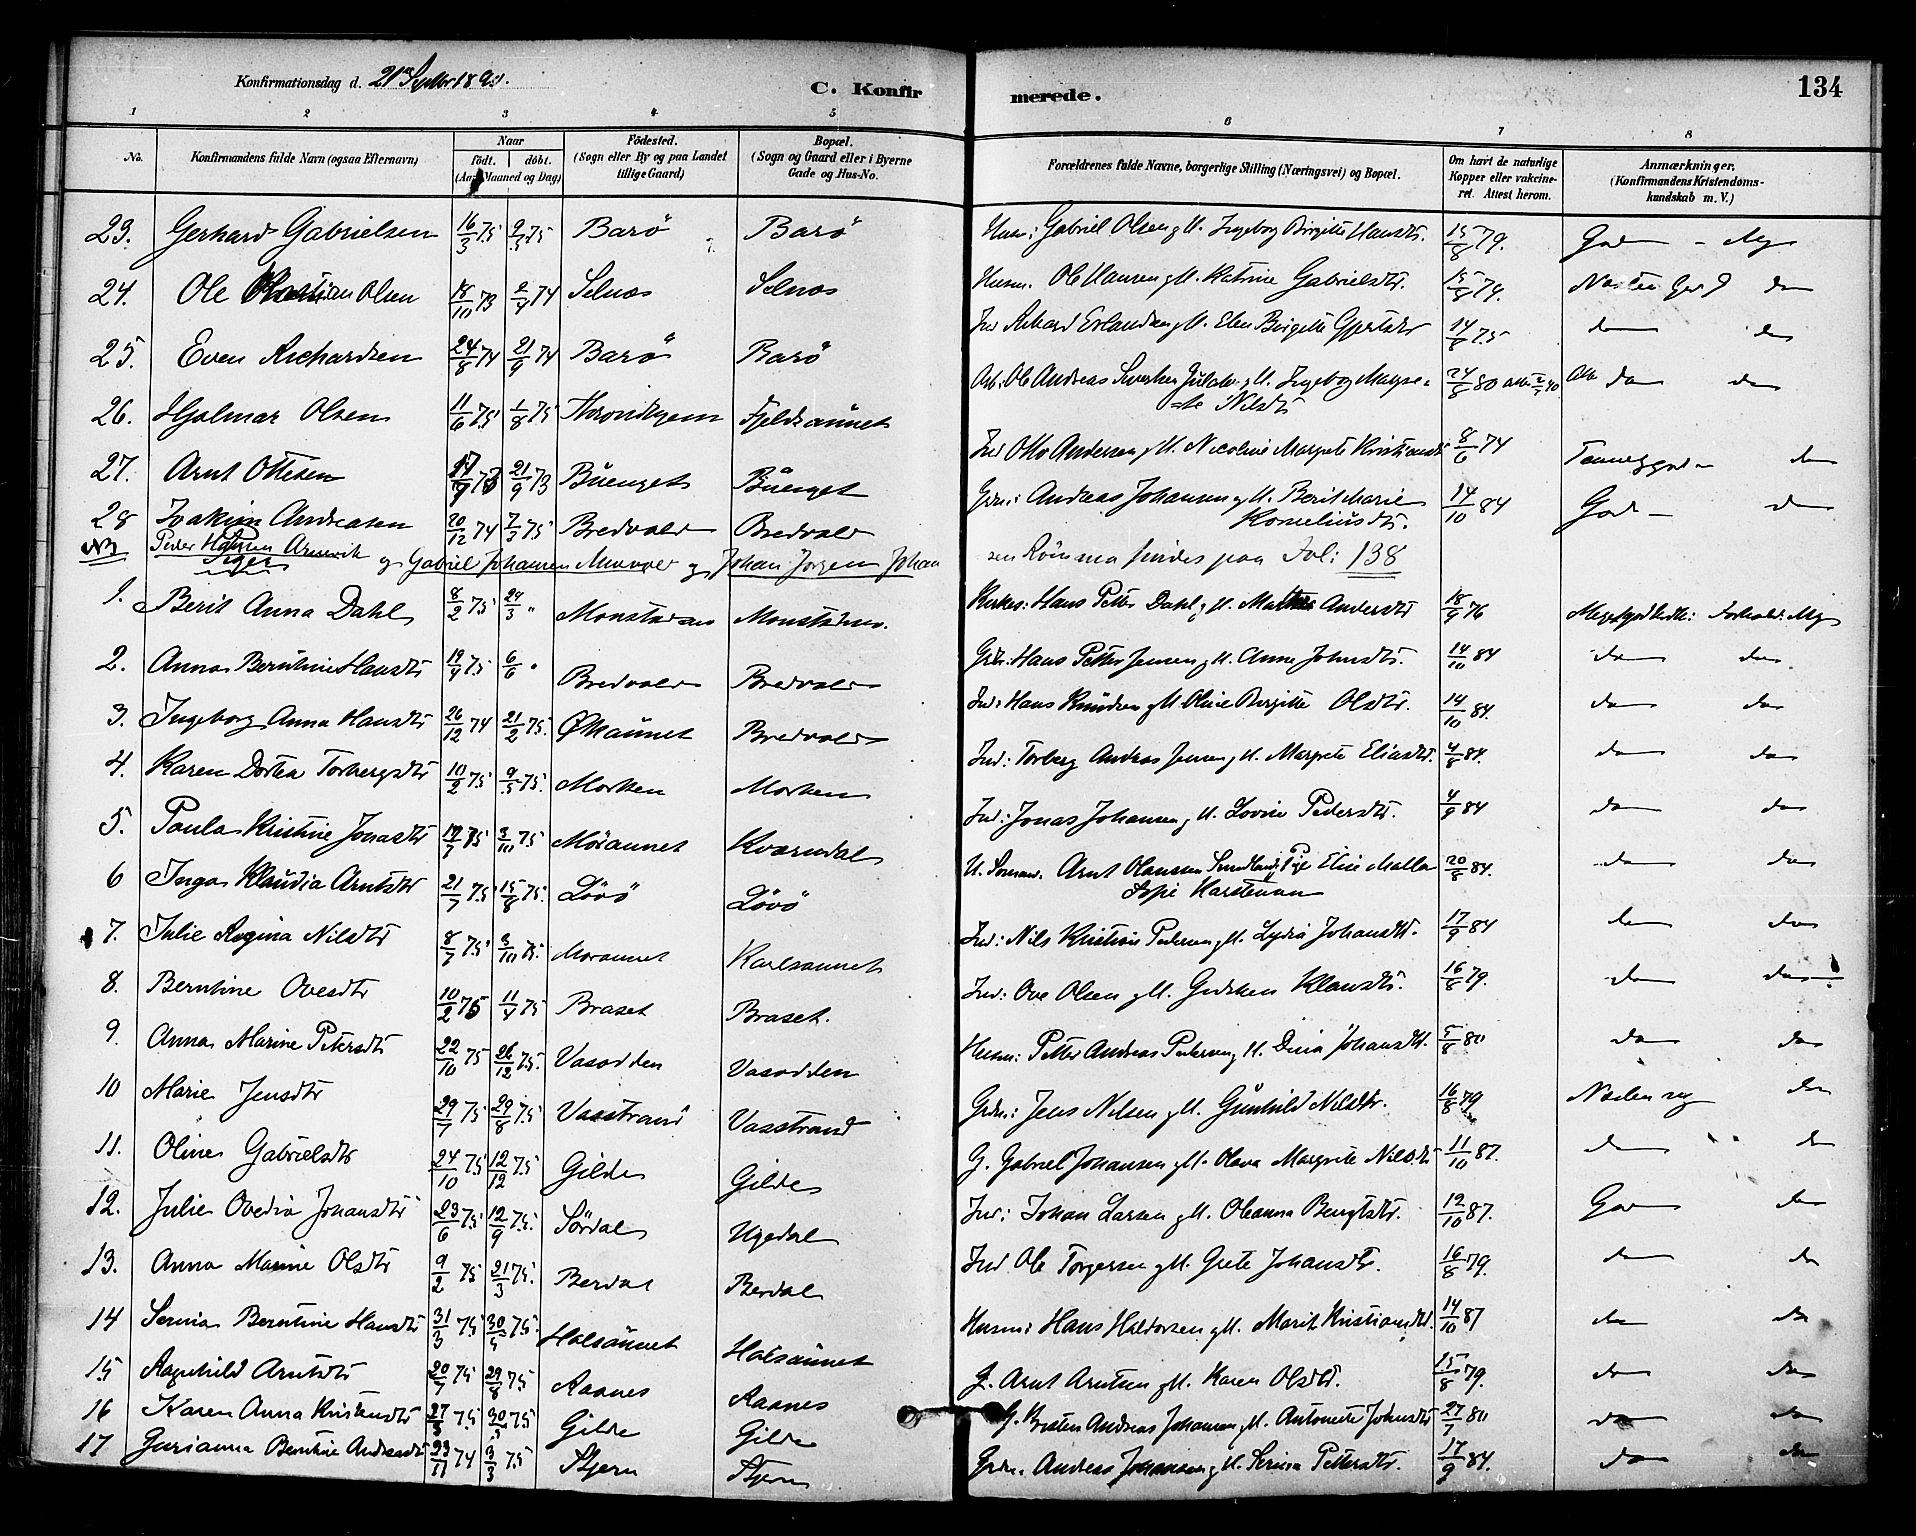 Konfirmationsdag d. 21de Septbr 1890.
C. Konfirmerede.
134
1 2 3 4 5 6 7 8
No. Konfirmandens fulde Navn (ogsaa Efternavn) Naar födt. döbt. (Aar, Maaned og Dag) Födested. (Sogn eller By og paa Landet tillige Gaard) Bopæl. (Sogn og Gaard eller i Byerne Gade og Hus-No. Forældrenes fulde Navne, borgerlige Stilling (Næringsvei) og Bopæl. Om havt de naturlige Kopper eller vakcineret. Attest herom. Anmærkninger, (Konfirmandens Kristendomskundskab m. V.)
23. Gerhard Gabrielsen 16/3 75 2/5 75 Barö Barö Husm: Gabriel Olsen g M. Ingeborg Birgitte Hansdtr. 15/8 79. God - Mg
24. Ole Olsen 18/10 73 2/4 74 Selnes Selnes Husm. Ole Hansen g M. Katrine Gabrielsdtr. 15/8 74. Næsten God do
25. Even Richardsen 24/8 74 21/9 74 Barö Barö Ind Rikard Erlandsen g M. Elen Birgitte 14/8 75 do do
26. Hjalmar Olsen 11/6 75 1/8 75 Throndhjem Fjeldsaunet Arb. Ole Andreas g M. Ingeborg Margrete Nilsdtr 24/8 80 do do
27. Arnt Ottesen 17/9 73 21/9 73 Buenget Buenget Ind Otto Andersen g M. Nicoline Margrete Kristiansdtr 8/6 74 Temmeliggod do
28 Joakim Andreasen 20/12 74 7/3 75 Bredvold Bredvold Grdm: Andreas Johansen g M. Berit Marie Korneliusdtr. 14/10 84 God - do
NB Peder Hansen og Gabriel Johansen og Johan Jörgen Johansen Römma findes paa Fol: 138
1. Berit Anna Dahl 8/2 75 24/3 " Monstadmo Monstadmo. Kirkes: Hans Petter Dahl g M. Marthe Andersdtr 18/9 76 Megetgod Forhold: Mg
2. Anna Berntine Hansdtr 19/4 75 6/6 " Bredvold Bredvold Grdm: Hans Petter Jensen g M. Anne Johnsdtr. 14/10 84 do do
3. Ingeborg Anna Hansdtr 26/12 74 21/2 75. Ökaunet Bredvold Ind: Hans Knudsen g M. Oline Birgitte Olsdtr. 14/10 84. do do
4. Karen Dortea Torbergsdtr 10/2 75 9/5 75. Morken Morken Ind: Torberg Andreas Jensen g M. Margrete Eliasdtr. 4/8 84. do do
5. Paula Kristine Jonasdtr 19/7 75 3/10 75 Möraunet Kværndal Ind: Jonas Johansen g M. Lovise Pedersdtr. 4/9 84 do do
6 Inga Klaudia Arntsdtr 21/7 75 15/8 75. Lövö Lövö U. Arnt Olaussen Pige Elise Malla Sofie Hartmann 20/8 84. do do
7. Julie Regina Nilsdtr 8/7 75 3/10 75. Moraunet Karlsaunet Ind: Nils Kristian Pedersen g M. Lydia Johansdtr. 17/9 84 do do
8. Berntine Ovesdtr 10/2 75 11/4 75 Braset Braset. Ind: Ove Olsen g M. Gjertken Klausdtr. 16/8 79. do do
9. Anna Marine Petersdtr 22/10 75 26/12 75. Vasodden Vasodden Husm: Petter Andreas Pedersen g M. Dina Johansdtr. 5/8 80 do do
10 Marie Jensdtr 29/7 75 29/8 75. Vasstrand Vasstrand Grdm: Jens Nilsen g M. Gunhild Nilsdtr. 16/8 79 Næsten mg do
11. Oline Gabrielsdtr 24/10 75 12/12 75. Gilde Gilde G. Gabriel Johansen g M. Olava Margrete Nilsdtr 11/10 87. do do
12. Julie Ovedia Johansdtr 23/6 75 12/9 75. Sördal Ugedal Ind: Johan Larsen g M. Oleanna Bengtsdtr. 12/10 87. God do
13. Anna Marine Olsdtr 9/2 75 21/3 75. Berdal Berdal Ind Ole Torgersen g M. Grete Johansdtr. 16/8 79. do do
14 Serina Berntine Hansdtr 31/3 75 30/5 75. Halsaunet Halsaunet Husm: Hans Haldorsen g M. Marit Kristiansdtr. 14/10 87 do do
15 Ragnhild Arntsdtr 20/7 75 29/8 75 Aaanes Aaanes G. Arnt Arntsen g M. Karen Olsdtr. 15/8 79. do do
16 Karen Anna Kristensdtr 27/3 75 30/5 75 Gilde Gilde G. Kristen Andreas Johansen g M. Antonette Johnsdtr 27/7 80 do do
17 Gurianna Berntine Andreasdtr 23/11 74 3/3 75. Stjern Stjern Grdm. Andreas Johansen g M. Serina Pettersdtr. 17/9 84. do do